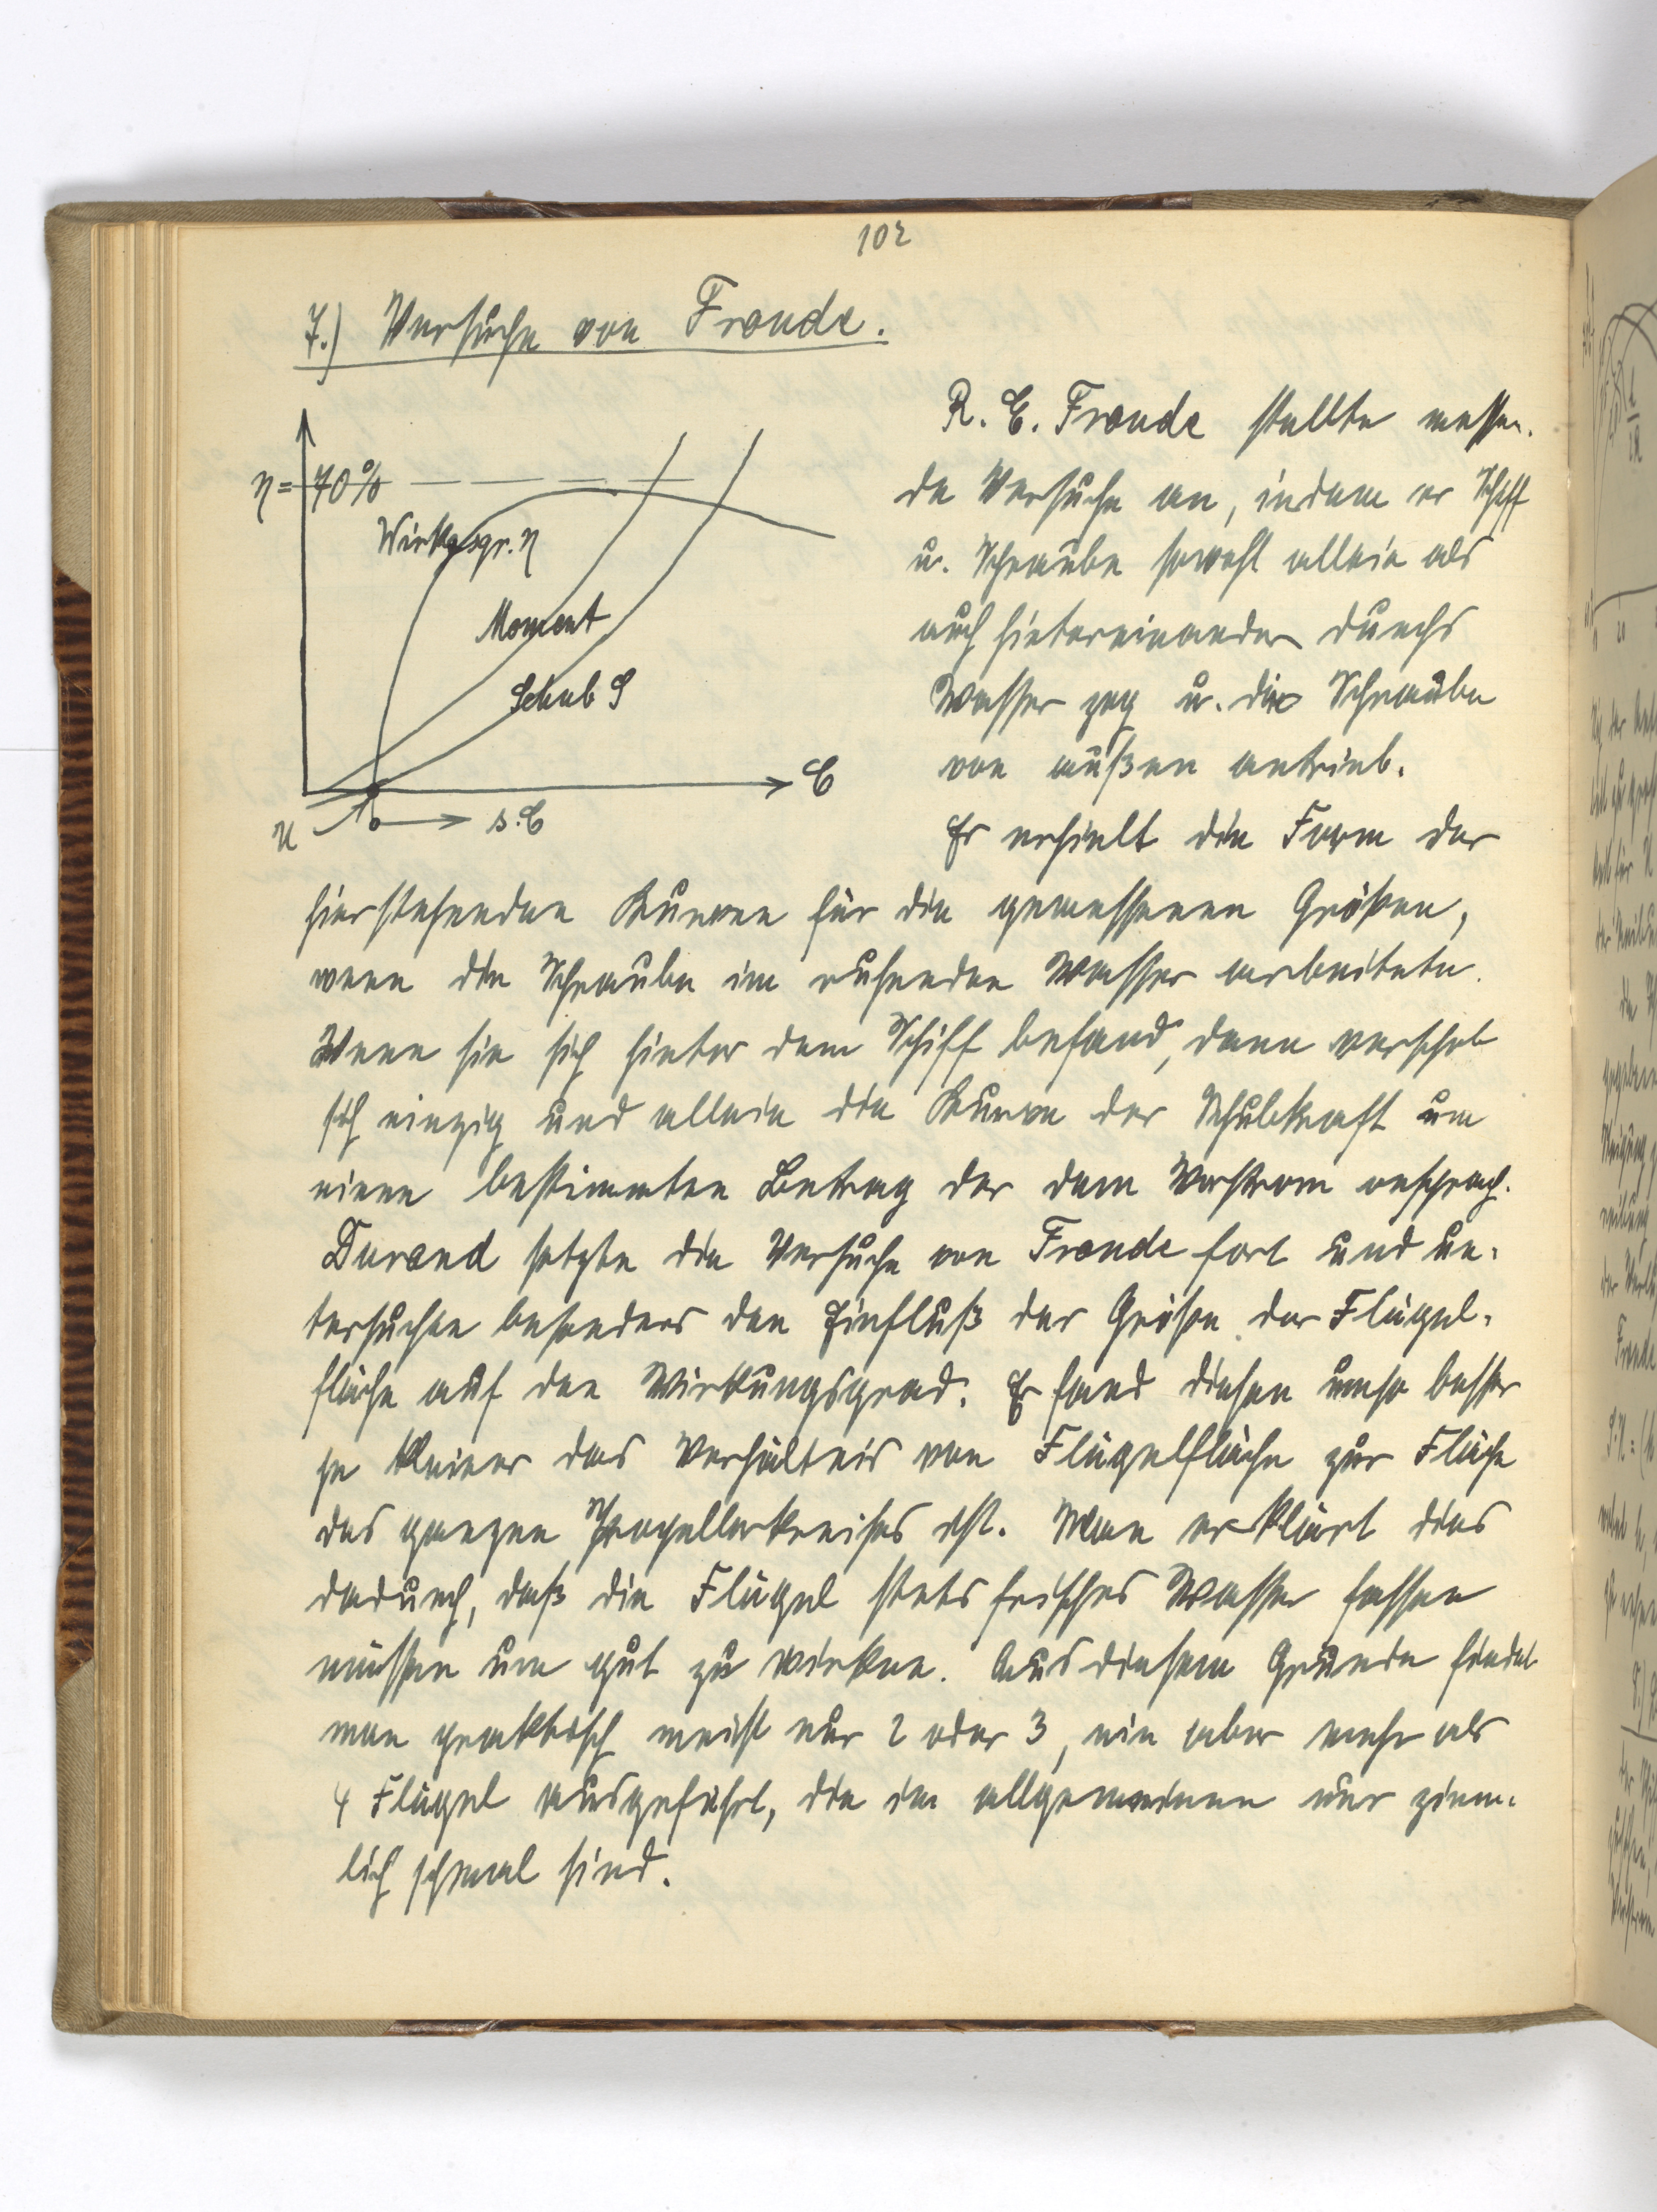 102
7.) Versuche von Froude.
η = 70%
Wirkgsgr. η
Moment
Schub S
C
u
s.C
R. E. Froude stellte messen-
de Versuche an, indem er Schiff
u. Schraube sowohl allein als
auch hintereinander durchs
Wasser zog u. die Schraube
von außen antrieb.
Er erhielt die Form der
hierstehenden Kurven für die gemessenen Größen,
wenn die Schraube im ruhenden Wasser arbeitete.
Wenn sie sich hinter dem Schiff befand, dann verschob
sich einzig und allein die Kurve der Schubkraft um
einen bestimmten Betrag der dem Vorstrom entsprach.
Durand setzte die Versuche von Froude fort und un-
tersuchte besonders den Einfluß der Größe der Flügel-
fläche auf den Wirkungsgrad. Er fand diesen umso besser
je kleiner das Verhältnis von Flügelfläche zur Fläche
des ganzen Propellerkreises ist. Man erklärt dies
dadurch, daß die Flügel stets frisches Wasser fassen
müssen um gut zu wirken. Aus diesem Grunde findet
man praktisch meist nur 2 oder 3, nie aber mehr als
4 Flügel ausgeführt, die im allgemeinen nur ziem-
lich schmal sind.